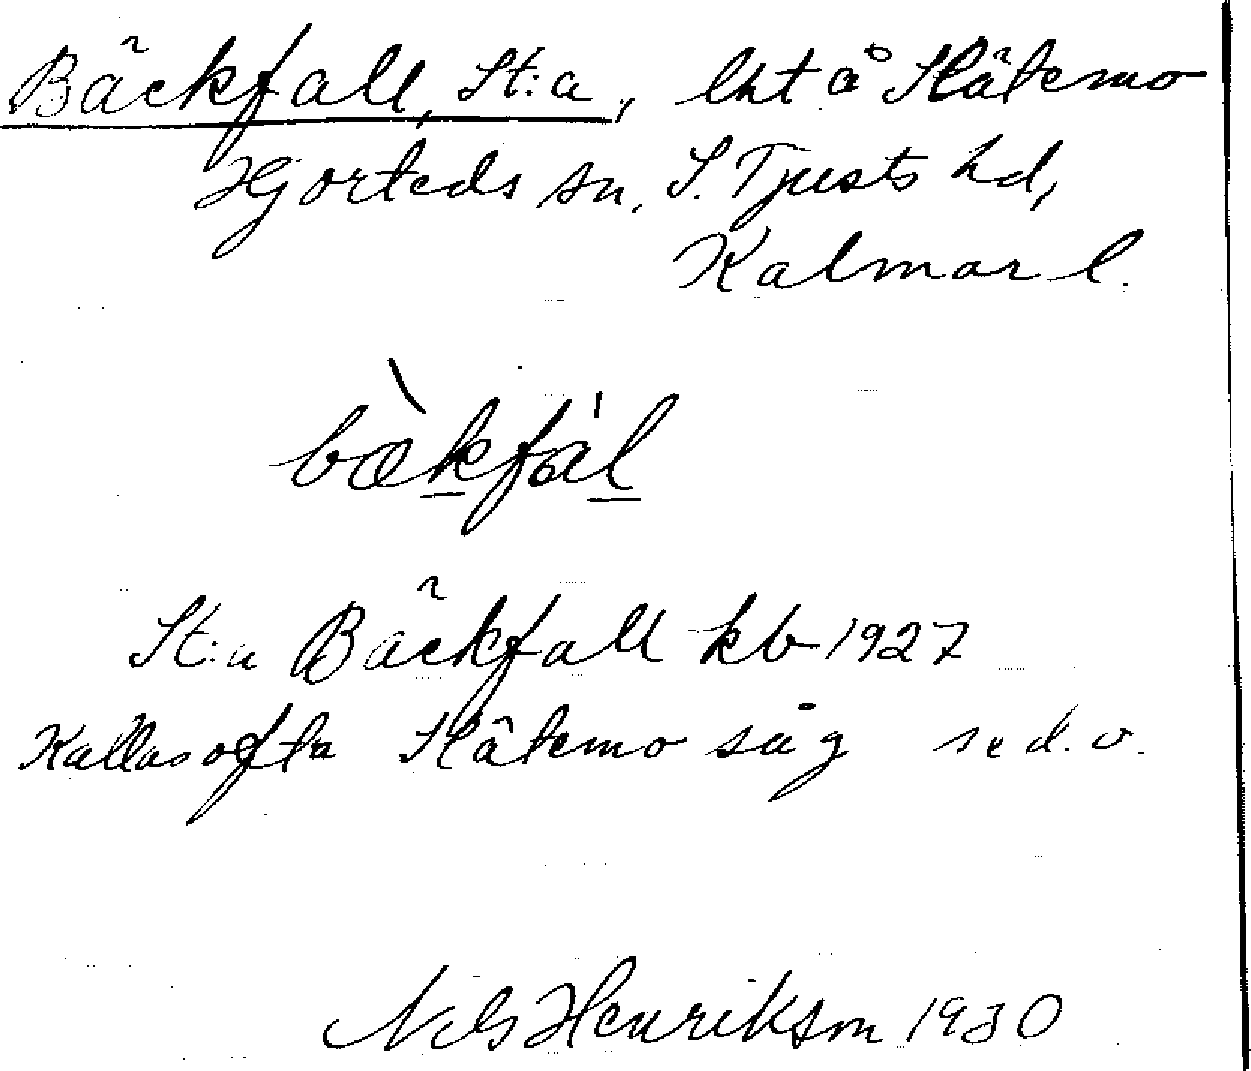 Bäckfall, St:a, lht å Slätemo
Hjorteds sn. S. Tjusts hd,
Kalmar l.
bækfàl
St:a Bäckfall kb 1927
Kallas ofta Slätemo såg se d. o.
Nils Henrikson 1930